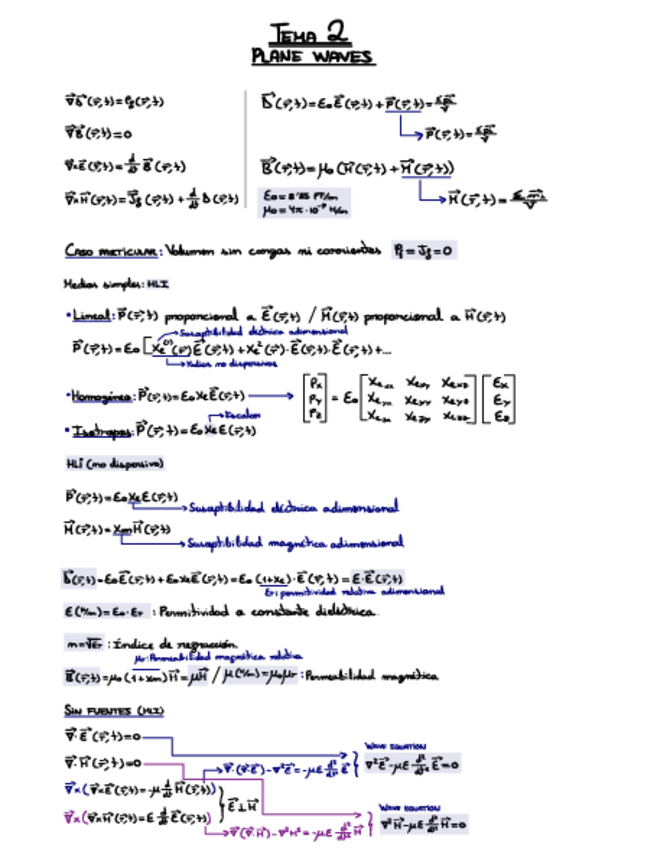 TEMA 2
PLANE WAVES
∇⃗D⃗(r⃗,t)=ρf(r⃗,t)
∇⃗B⃗(r⃗,t)=0
∇⃗×E⃗(r⃗,t)=d/dt B⃗(r⃗,t)
∇⃗×H⃗(r⃗,t)=J⃗f(r⃗,t)+d/dt D(r⃗,t)
D⃗(r⃗,t)=ε₀E⃗(r⃗,t)+P⃗(r⃗,t)=Σp⃗i/V
P⃗(r⃗,t)=Σp⃗i/V
B⃗(r⃗,t)=μ₀(H⃗(r⃗,t)+M⃗(r⃗,t))
M⃗(r⃗,t)=Σm⃗i/V
ε₀=8'85 PF/m
μ₀=4π·10⁻⁷ H/m
CASO PARTICULAR: Volumen sin cargas ni corrientes ρf=Jf=0
Medios simples: HLI
•Lineal: P⃗(r⃗,t) proporcional a E⃗(r⃗,t) / M⃗(r⃗,t) proporcional a H⃗(r⃗,t)
Susceptibilidad eléctrica adimensional
P⃗(r⃗,t)=ε₀[χe⁽¹⁾(r⃗)E⃗(r⃗,t)+χe²(r⃗)·E⃗(r⃗,t)·E⃗(r⃗,t)+...
Medios no dispersivos
•Homogéneo: P⃗(r⃗,t)=ε₀χeE⃗(r⃗,t) → [Px Py Pz] = ε₀ [χexx χexy χexz χeyx χeyy χeyz χezx χezy χezz] [Ex Ey Ez]
Escalar
•Isotropos: P⃗(r⃗,t)=ε₀χeE(r⃗,t)
HLI (no dispersivo)
P⃗(r⃗,t)=ε₀χeE(r⃗,t)
Susceptibilidad eléctrica adimensional
M⃗(r⃗,t)=χmH⃗(r⃗,t)
Susceptibilidad magnética adimensional
D⃗(r⃗,t)=ε₀E⃗(r⃗,t)+ε₀χeE⃗(r⃗,t)=ε₀(1+χe)·E⃗(r⃗,t)=ε·E⃗(r⃗,t)
εr: permitividad relativa adimensional
ε(F/m)=ε₀·εr : Permitividad a constante dieléctrica
n=√εr : Índice de refracción.
μr: Permeabilidad magnética relativa
B⃗(r⃗,t)=μ₀(1+χm)H⃗=μH⃗ / μ(H/m)=μ₀μr : Permeabilidad magnética
SIN FUENTES (HLI)
∇⃗·E⃗(r⃗,t)=0
∇⃗·H⃗(r⃗,t)=0
∇⃗×(∇⃗×E⃗(r⃗,t)=-μ d/dt H⃗(r⃗,t))
∇⃗×(∇⃗×H⃗(r⃗,t)=ε d/dt E⃗(r⃗,t))
E⃗⊥H⃗
∇⃗·(∇⃗·E⃗)-∇²E⃗=-με d²/dt² E⃗
WAVE EQUATION
∇²E⃗-με d²/dt² E⃗=0
∇⃗(∇⃗·H⃗)-∇²H⃗=-με d²/dt² H⃗
WAVE EQUATION
∇²H⃗-με d²/dt² H⃗=0